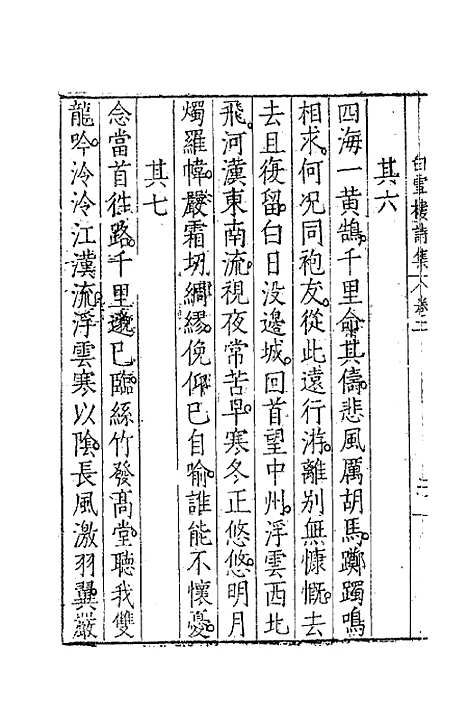 白雪樓詩集卷上
其六
四海一黃鵠千里命其儔悲風厲胡馬躑躅鳴
相求何況同袍友從此遠行游離別無慷慨去
去且復留白日沒邊城回首望中州浮雲西北
飛河漢東南流視夜常苦早寒冬正悠悠明月
燭羅幃嚴霜切綢繆俛仰已自喻誰能不懷憂
其七
念當首徃路千里遶已臨絲竹發髙堂聽我雙
龍吟泠泠江漢流浮雲寒以隂長風激羽翼嚴